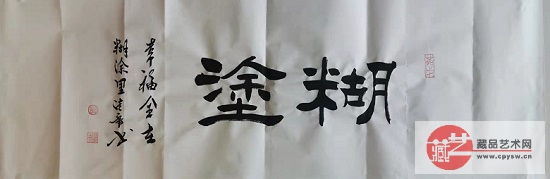 糊塗
幸福全在
糊涂里
藏品艺术网
www.cpysw.com